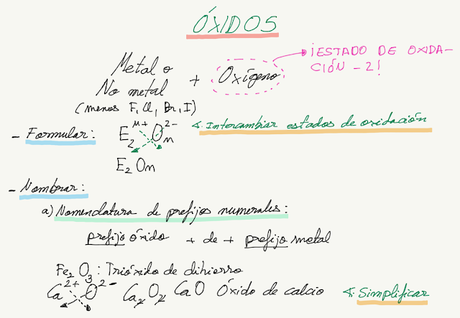 ÓXIDOS
Metal o
No metal + Oxígeno → ¡ESTADO DE OXIDA-
CIÓN -2!
(menos F, Cl, Br, I)
- Formular: E₂ⁿ⁺ Oₙ²⁻ Intercambiar estados de oxidación
E₂Oₙ
- Nombrar:
a) Nomenclatura de prefijos numerales:
prefijo óxido + de + prefijo metal
Fe₂O₃: Trióxido de dihierro
Ca²⁺ O²⁻ Ca₂O₂ CaO Óxido de calcio Simplificar